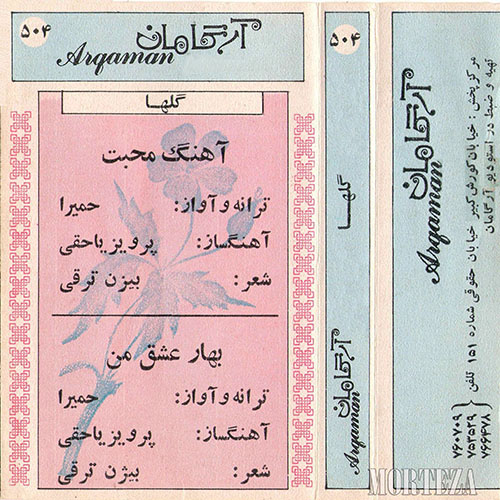 ۵۰۴
آرگامان
Arqaman
گلها
آهنگ محبت
ترانه و آواز: حمیرا
آهنگساز: پرویز یاحقی
شعر: بیژن ترقی
بهار عشق من
ترانه و آواز: حمیرا
آهنگساز: پرویز یاحقی
شعر: بیژن ترقی
۵۰۴
گلها
آرگامان
Arqaman
آرگامان
Arqaman
تهیه و ضبط در استودیو آرگامان
مرکز پخش: خیابان کورش کبیر خیابان حقوقی شماره ۱۵۱ تلفن
۷۶۰۷۰۹
۷۵۳۵۲۹
۷۶۶۴۷۸
MORTEZA